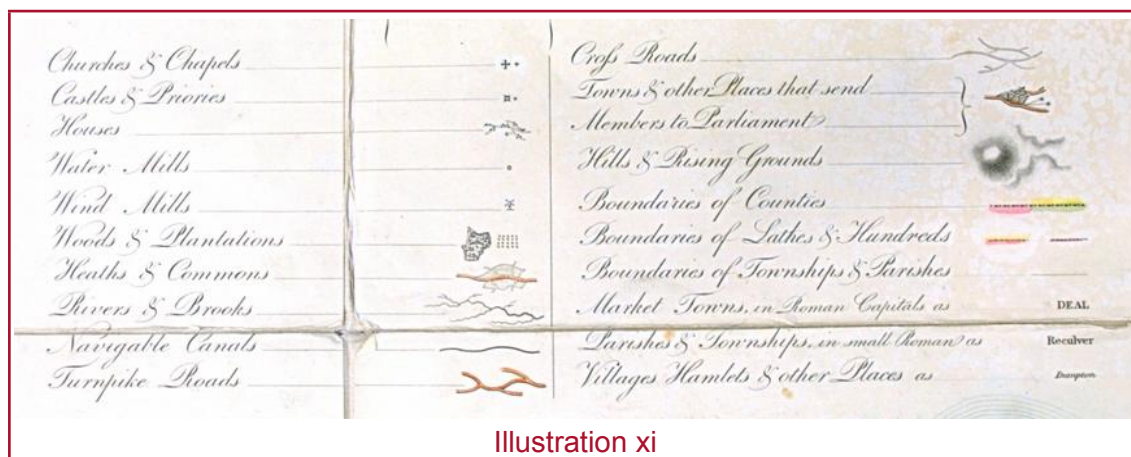 Churches & Chapels
Castles & Priories
Houses
Water Mills
Wind Mills
Woods & Plantations
Heaths & Commons
Rivers & Brooks
Navigable Canals
Turnpike Roads
Croſs Roads
Towns & other Places that send
Members to Parliament
Hills & Rising Grounds
Boundaries of Counties
Boundaries of Lathes & Hundreds
Boundaries of Townships & Parishes
Market Towns, in Roman Capitals as DEAL
Parishes & Townships, in small Roman as Reculver
Villages Hamlets & other Places as
Illustration xi